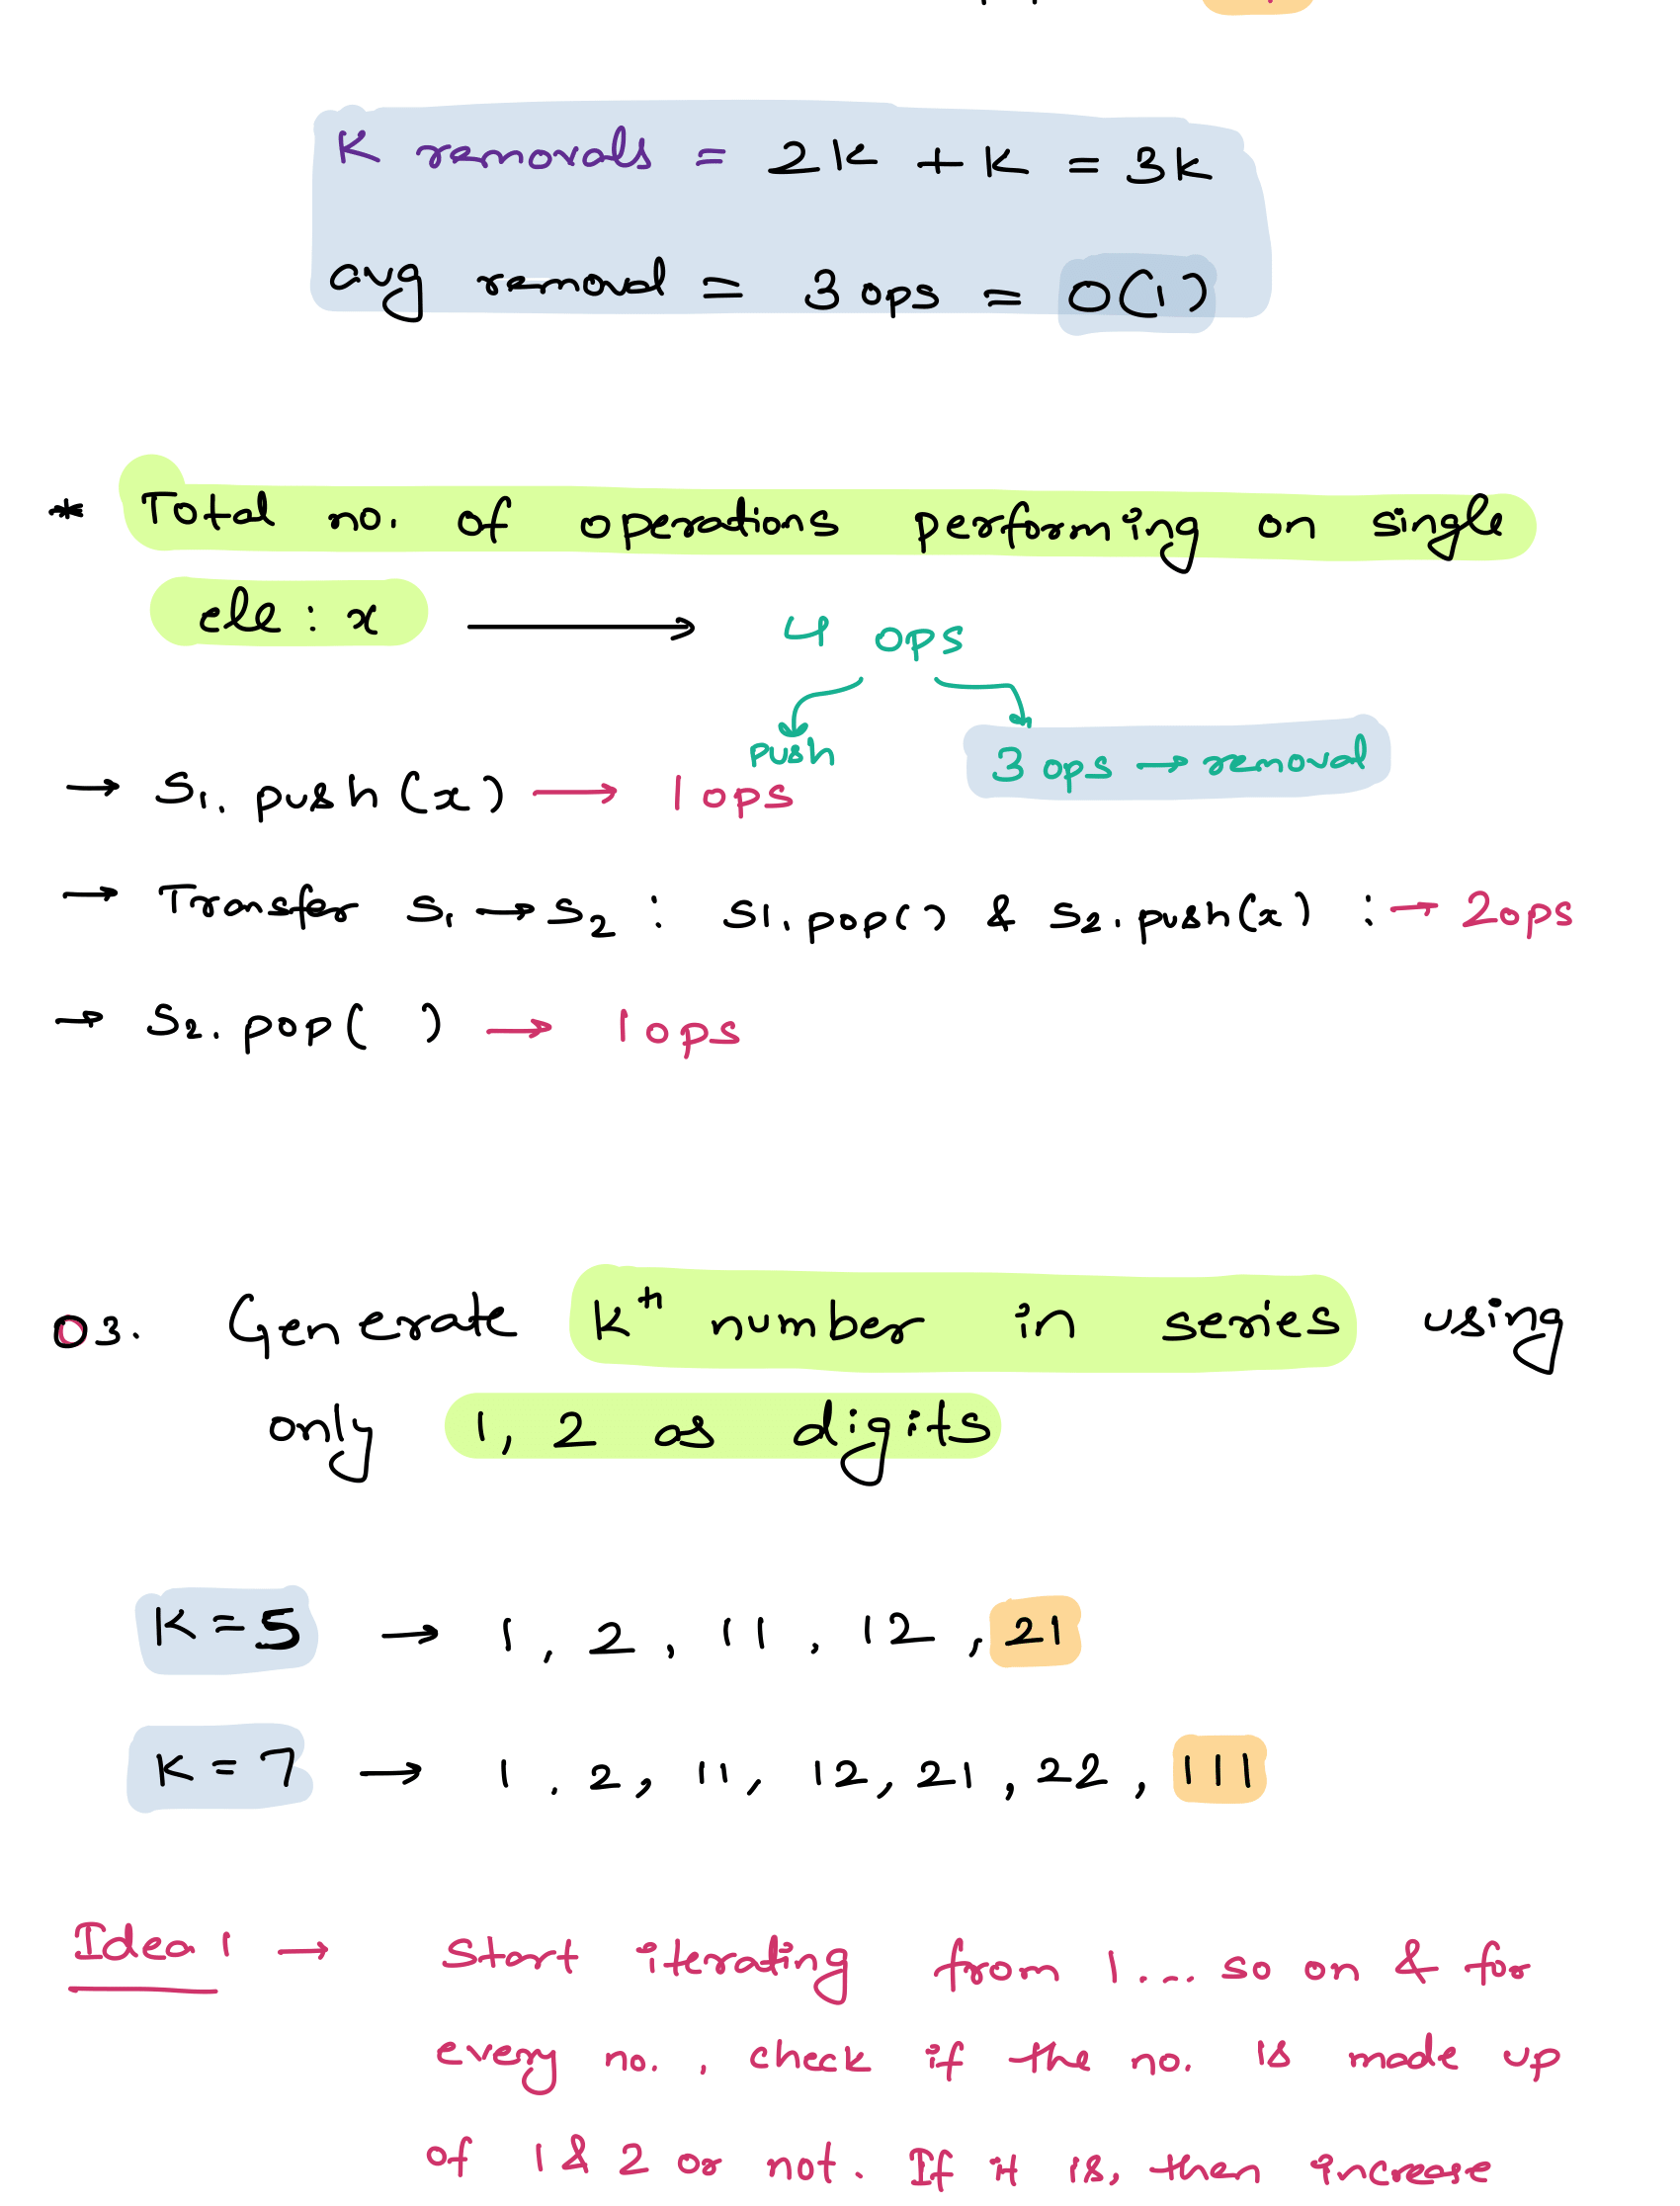 K removals = 2k + k = 3k
avg removal = 3 ops = O(1)
* Total no. of operations performing on single
ele : x → 4 ops
push
3 ops → removal
→ S1. push(x) → 1 ops
→ Transfer S1 → S2 : S1. pop() & S2. push(x) : → 2 ops
→ S2. pop( ) → 1 ops
03. Generate Kth number in series using
only 1, 2 as digits
K = 5 → 1, 2, 11, 12, 21
K = 7 → 1, 2, 11, 12, 21, 22, 111
Idea 1 → Start iterating from 1... so on & for
every no., check if the no. is made up
of 1 & 2 or not. If it is, then increase